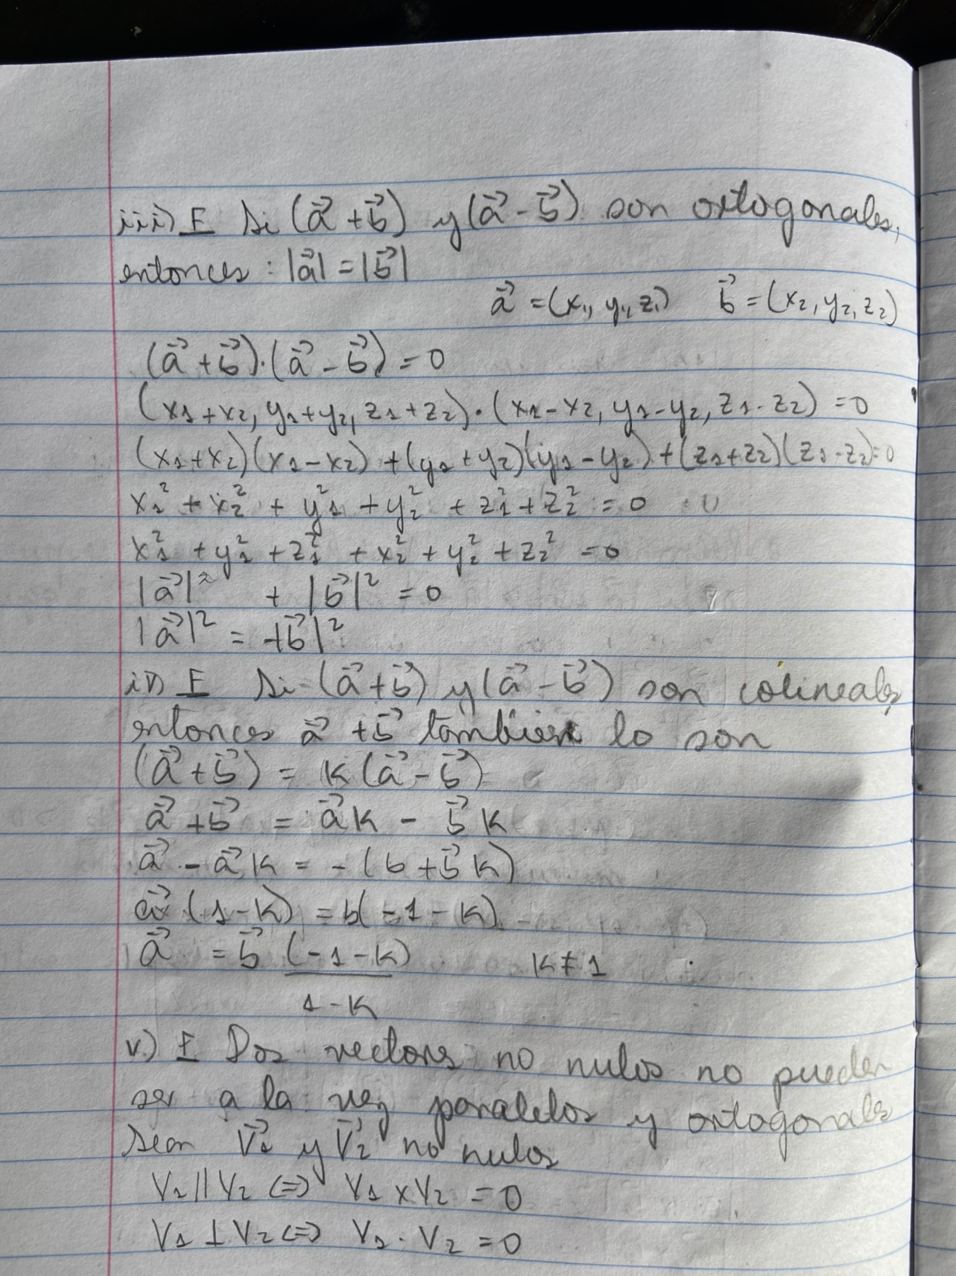 iii) F Si (a⃗ + b⃗) y (a⃗ - b⃗) son ortogonales,
entonces : |a⃗| = |b⃗|
a⃗ = (x₁, y₁, z₁) b⃗ = (x₂, y₂, z₂)
(a⃗ + b⃗)·(a⃗ - b⃗) = 0
(x₁+x₂, y₁+y₂, z₁+z₂)·(x₁-x₂, y₁-y₂, z₁-z₂) = 0
(x₁+x₂)(x₁-x₂) + (y₁+y₂)(y₁-y₂) + (z₁+z₂)(z₁-z₂)=0
x₁² + x₂² + y₁² + y₂² + z₁² + z₂² = 0
x₁² + y₁² + z₁² + x₂² + y₂² + z₂² = 0
|a⃗|² + |b⃗|² = 0
|a⃗|² = -|b⃗|²
iv) F Si (a⃗+b⃗) y (a⃗ - b⃗) son colineales
entonces a⃗ + b⃗ tambien lo son
(a⃗ + b⃗) = k (a⃗ - b⃗)
a⃗ + b⃗ = a⃗k - b⃗k
a⃗ - a⃗k = -(b + b⃗k)
a⃗ (1-k) = b(-1-k)
a⃗ = b⃗ (-1-k) / 1-k k≠1
v.) F Dos vectores no nulos no pueden
ser a la vez paralelos y ortogonales
Sean V⃗₁ y V⃗₂ no nulos
V₁ || V₂ <=> V₁ x V₂ = 0
V₁ ⊥ V₂ <=> V₁ · V₂ = 0